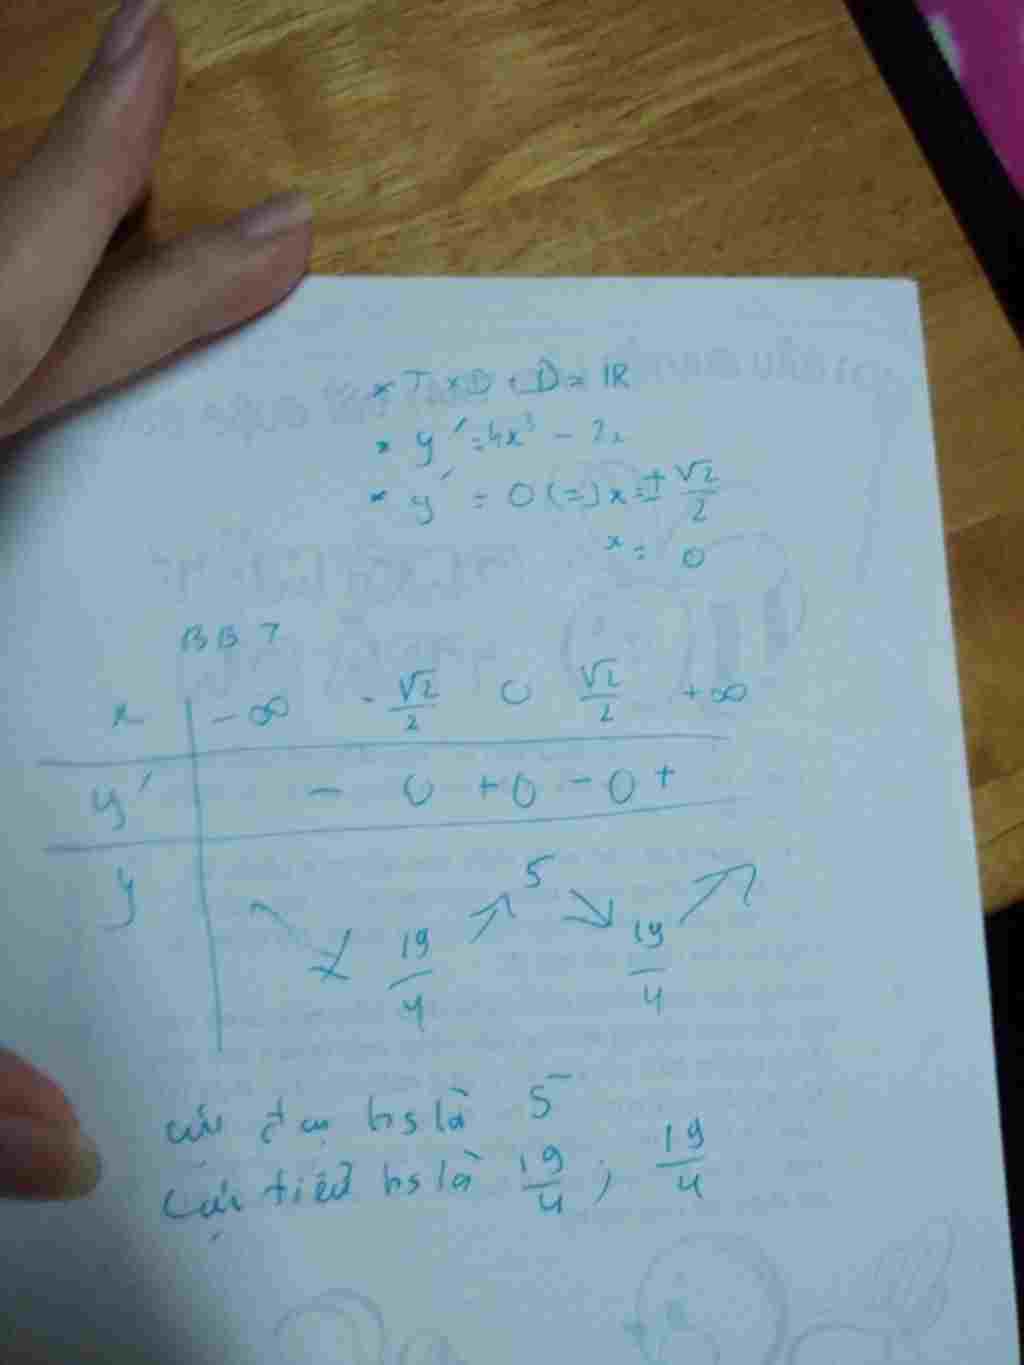 * TXD : D = IR
* y' = 4x³ - 2x
* y' = 0 (=) x = ± √2/2
x = 0
BBT
x -∞ -√2/2 0 √2/2 +∞
y' - 0 + 0 - 0 +
y 19/4 5 19/4
cực đại hs là 5
Cực tiểu hs là 19/4 ; 19/4